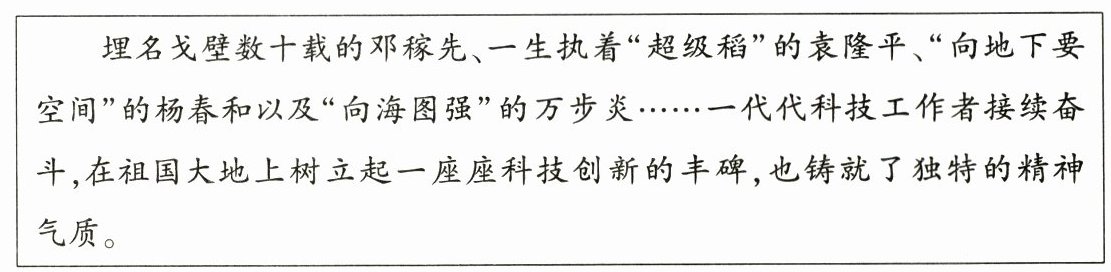 埋名戈壁数十载的邓稼先、一生执着“超级稻”的袁隆平、“向地下要
空间”的杨春和以及“向海图强”的万步炎……一代代科技工作者接续奋
斗,在祖国大地上树立起一座座科技创新的丰碑,也铸就了独特的精神
气质。